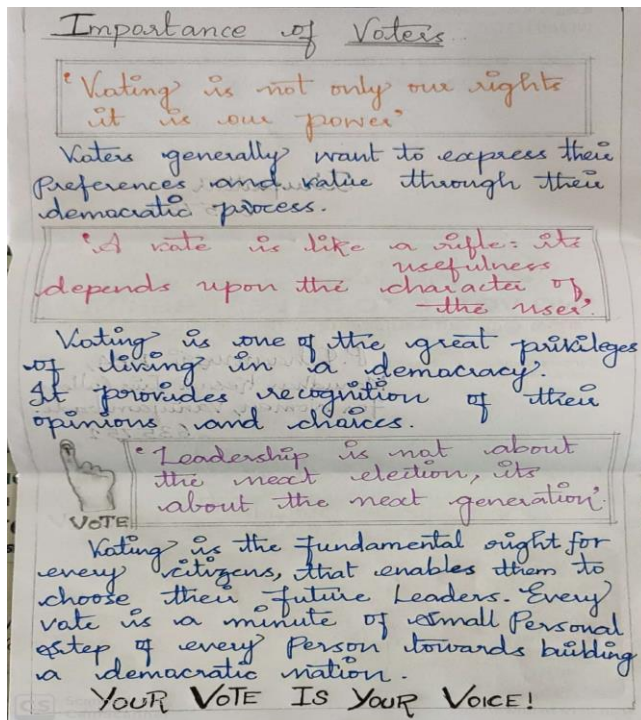 Importance of Voters
'Voting is not only our rights
it is our power'
Voters generally want to express their
Preferences and value through their
democratic process.
'A vote is like a rifle: its
usefulness
depends upon the character of
the user'.
Voting is one of the great privileges
of living in a democracy.
It provides recognition of their
opinions and choices.
'Leadership is not about
the next election, its
about the next generation'.
VOTE
Voting is the fundamental right for
every citizens, that enables them to
choose their future Leaders. Every
vote is a minute of small Personal
step of every Person towards building
a democratic nation.
YOUR VOTE IS YOUR VOICE!
CS